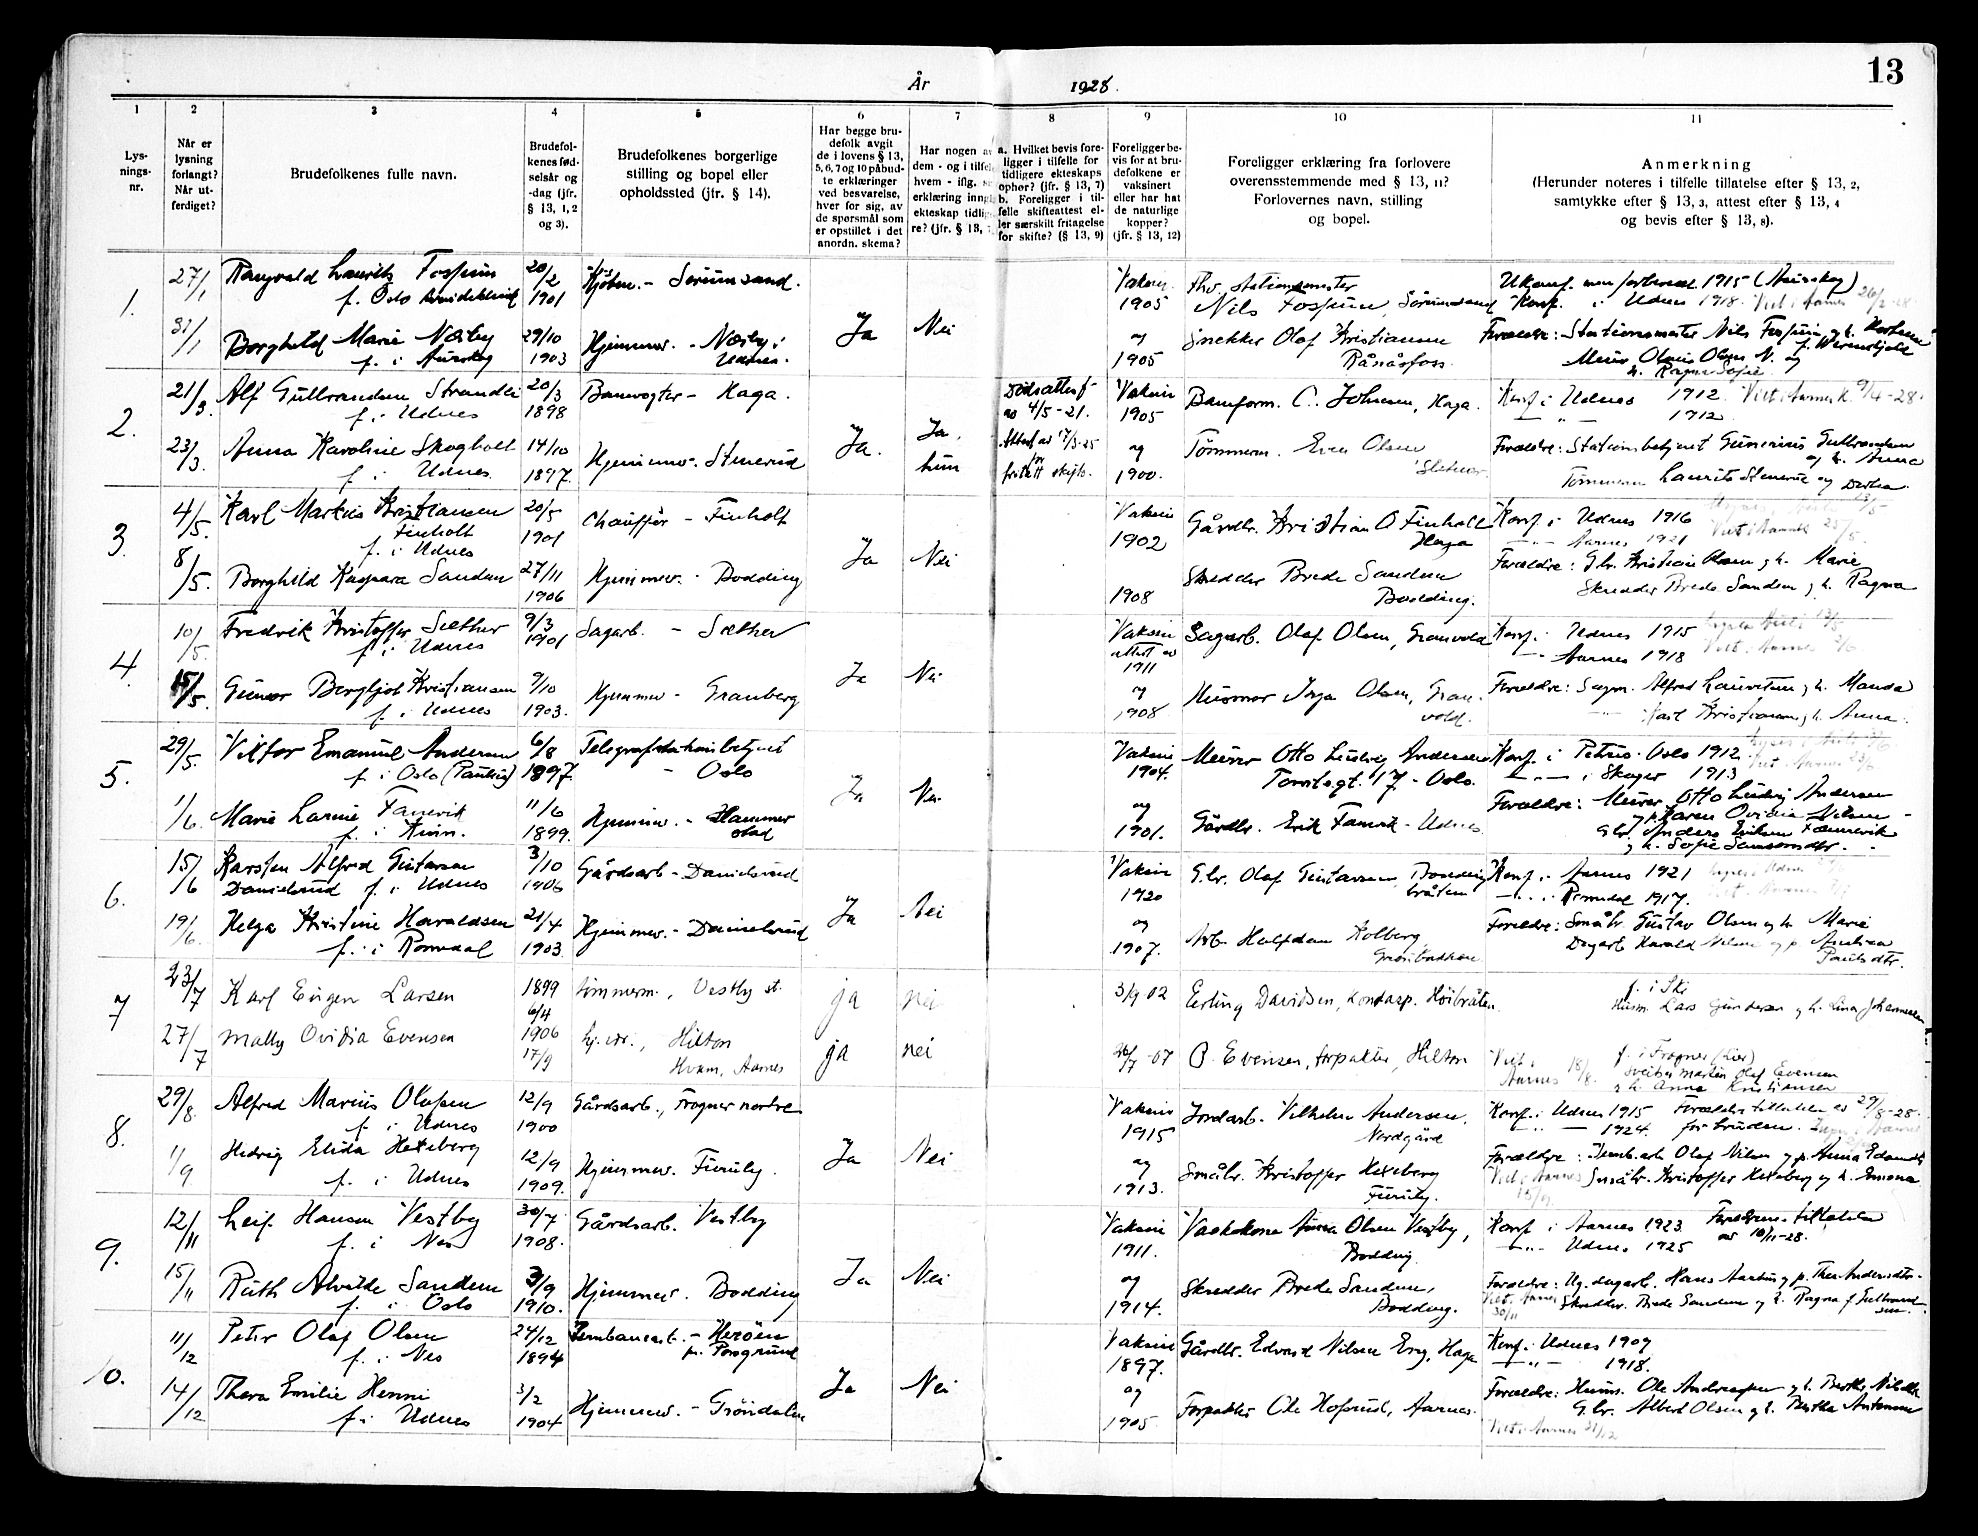 13
År 1928.
1 2 3 4 5 6 7 8 9 10 11
Lys-
nings-
nr.
Når er
lysning
forlangt?
Når ut-
ferdiget?
Brudefolkenes fulle navn.
Brudefol-
kenes fød-
selsår og
-dag (jfr.
§ 13, 1, 2
og 3).
Brudefolkenes borgerlige
stilling og bopel eller
opholdssted (jfr. § 14).
Har begge bru-
defolk avgit
de i lovens § 13,
5, 6, 7 og 10 påbud-
te erklæringer
ved besvarelse,
hver for sig, av
de spørsmål som
er opstillet i det
anordn. skema?
Har nogen av
dem - og i tilfelle
hvem - iflg. s
erklæring inng
ekteskap tidlig
re? (jfr. § 13,
a. Hvilket bevis fore-
ligger i tilfelle for
tidligere ekteskaps
ophør? (jfr. § 13, 7)
b. Foreligger i til-
felle skifteattest el-
ler særskilt fritagelse
for skifte? (§ 13, 9)
Foreligger be-
vis for at bru-
defolkene er
vaksinert
eller har hat
de naturlige
kopper?
(jfr. § 13, 12)
Foreligger erklæring fra forlovere
overensstemmende med § 13, 11?
Forlovernes navn, stilling
og bopel.
Anmerkning
(Herunder noteres i tilfelle tillatelse efter § 13, 2,
samtykke efter § 13, 3, attest efter § 13, 4
og bevis efter § 13, 8).
1. 27/1 Rangvald Lauritz Fossum 20/2 - Sørumsand. Vaksin. Fhv. stationsmester Ukonf. 1915 (Aurskog)
f. Oslo 1901 1905 Nils Fossum, Sørumsand Konf. i Udnes 1918.
31/1 Borghild Marie Næsby 29/10 Hjemmev. - Næsby i Ja Nei og Snekker Olaf Kristiansen Forældre: Stationsmester Nils Fossum og h.
f. i Aurskog 1903 Udnes. 1905 Rånåsfoss. Murer Olaus Olsen N. og
h. Ragna Sofie
2. 21/3. Alf Gulbrandsen Strandli 20/3 Banevogter - Haga. Dødsattest Vaksin Baneform. C. Johnsen, Haga. Konf. i Udnes 1912. Viet i Aarnes k. 9/4-28.
f. i Udnes 1898 av 4/5-21. 1905 1912.
23/3. Anna Karoline Skogholt 14/10 Hjemmev. Stenerud Ja. Ja, hun Attest av 17/3-25 og Tømmerm. Even Olsen Forældre: Stationsbetjent Gunerius Gulbrandsen
f. i Udnes. 1897. fritatt for skifte. 1900. og h. Anna
Tømmerm. Laurits Stenerud og Dorthea
3. 4/5. Karl Markus Kristiansen 20/5 Chauffør - Finholt Vaksin Gårdbr. Kristian O Finholt Konf. i Udnes 1916
Finholt 1901 1902 Haga Aarnes 1921
f. i Udnes
8/5. Borghild Kaspara Sanden 27/11 Hjemmev. - Bodding Ja Nei Skredder Brede Sanden Forældre: Gbr. Kristian Olsen og h. Marie
1906 1908 Bodding. Skredder Brede Sanden og h. Ragna
4. 10/5. Fredrik Kristoffer Sæther 9/3 Sagarb. - Sæther Vaksin Sagarb. Olaf Olsen, Granvold Konf. i Udnes 1915
f. i Udnes 1901 attest av 1911 Aarnes 1918
15/5. Gunvor Bergljot Kristiansen 9/10 Hjemmev - Granberg Ja Nei og Husmor Inga Olsen, Gran- Forældre: Sagm. Alfred Lauritsen og h. Manda
f. i Udnes 1903. 1908. vold. Karl Kristiansen og h. Anna.
5. 29/5. Viktor Emanuel Andersen 6/8 Telegrafstationsbetjent Vaksin Murer Otto Ludvig Andersen Konf. i Petrus. Oslo 1912.
f. i Oslo (Paulus) 1897. - Oslo 1904. 17 - Oslo. i Skoger 1913
1/6. Marie Larine Fanevik 11/6 Hjemmev. - Hammer- Ja Nei og Gårdbr. Erik Fanevik - Udnes Forældre: Murer Otto Ludvig Andersen
1899. stad 1901. og h. Karen Ovidia Nilsen
Gbr. Anders Eriksen Fannevik
og h. Sofie
6. 15/6 Karsten Alfred Gustavsen 3/10 Gårdsarb. - Danielsrud Vaksin Gbr. Olaf Gustavsen, Bodding Konf. i Aarnes 1921
Danielsrud f. i Udnes 1906 1920 bråten Romedal 1917.
19/6. Helga Kristine Haraldsen 21/4 Hjemmev. - Danielsrud Ja Nei og Arb. Halfdan Kolberg Forældre: Småbr. Gustav Olsen og h. Marie
f. i Romedal 1903. 1907. Dagarb. Harald Nilsen og p. Andrea
Paulsdtr.
7 23/7 Karl Eugen Larsen 1899 tømmerm., Vestby st. ja nei 3/9 02 Erling Davidsen, Høibråten. f. i Ski
6/4 Husm. Lars Gundersen og h. Lina Johannesen
27/7 Mally Ovidia Evensen 1906 hj.v., Hilton ja nei 26/7-07 O. Evensen, forpakter, Hilton Viet i f. i Frogner (Lier)
17/9 Hvam, Aarnes Aarnes 18/8. Sveiser Martin Olaf Evensen
og h. Anna Kristiansen
8. 29/8. Alfred Marius Olafsen 12/9 Gårdsarb., Frogner nordre Vaksin Jordarb. Vilhelm Andersen, Konf. i Udnes 1915 Forældretillatelse av 29/8-28.
f. i Udnes 1900 1915 Nordgård 1924. for bruden.
1/9 Hedvig Elida Hexeberg 12/9 Hjemmev. Furuly. Ja Nei og Småbr. Kristoffer Hexeberg Forældre: Jernb.arb. Olaf Nilsen og p. Anna
f. i Udnes 1909. 1913. Furuly. Viet i Aarnes Småbr. Kristoffer Hexeberg og h. Emma
9. 12/11 Leif Hansen Vestby 30/7 Gårdsarb. Vestby Vaksin Vaskekone Anna Olsen Vestby, Konf. i Aarnes 1923 Foreldrenes tillatelse
f. i Nes 1908. 1911. Bodding Udnes 1925 av 10/11-28.
15/11 Ruth Alvilde Sanden 3/9 Hjemmev. Bodding Ja Nei og Skredder Brede Sanden, Forældre: Ug. dagarb. Hans Aarbu og p. Thea Andersdtr.
f. i Oslo 1910. 1914. Bodding. Viet i Aarnes 30/11 Skredder Brede Sanden og h. Ragna f. Gulbrand-
sen.
10. 11/12 Peter Olaf Olsen 24/12 Jernbanearb. - Herøen Vaksin Gårdbr. Edvard Nilsen Eng, Haga Konf. i Udnes 1909
f. i Nes 1894 pr. Porsgrund 1897. 1918.
14/12 Thora Emilie Henni 3/2 Hjemmev. - Grøndalen Ja Nei og Forpakter Ole Hofsrud, Aarnes. Forældre: Husm. Ole Andreassen og h. Berthe
f. i Udnes 1904 1905 Gbr. Albert Olsen og h. Bertha Antonsen
Viet i Aarnes 31/12